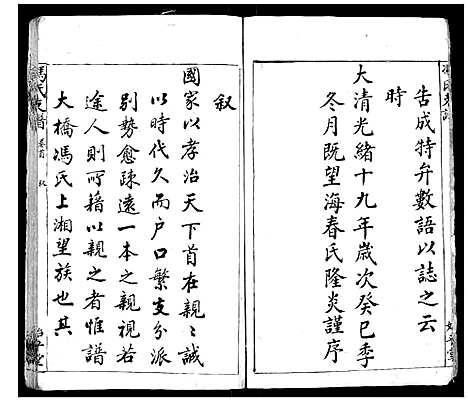 告成特弁數語以誌之云
時
大清光緒十九年歲次癸巳季
冬月既望海春氏隆炎謹序
叙
國家以孝治天下首在親〻誠
以時代久而户口繁支分派
别勢愈疎遠一本之親視若
途人則所藉以親之者惟譜
大橋馮氏上湘望族也其
馮氏支譜 卷首 叙